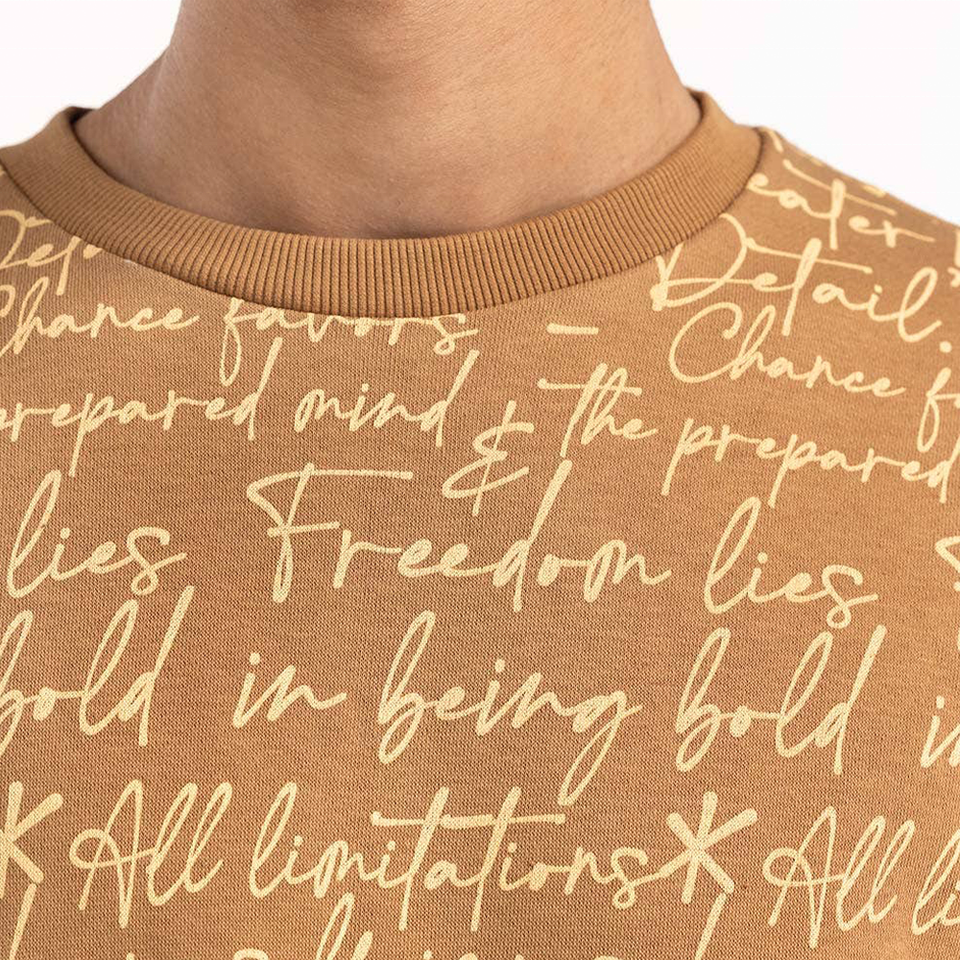 eater
Detail.
Chance favors – Chance
prepared mind & the prepared
lies Freedom lies
bold in being bold in
* All limitations * All